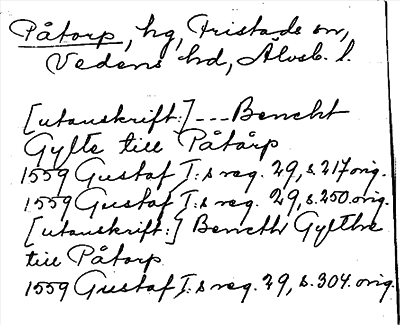 Påtorp, hg, Fristads sn,
Vedens hd, Älvsb. l.
[utanskrift:] --- Bencht
Gylte till Påtårp
1559 Gustaf I:s reg. 29, s. 217 orig.
1559 Gustaf I:s reg. 29, s. 250 orig.
[utanskrift:] Bencth Gylthe
till Påtorp
1559 Gustaf I:s reg. 29, s. 304. orig.